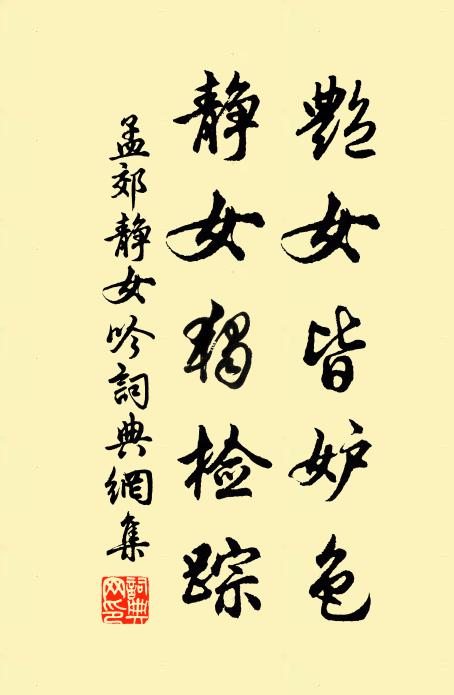 艷女皆妒色
静女獨檢踪
孟郊静女吟詞典網集
詞典網印